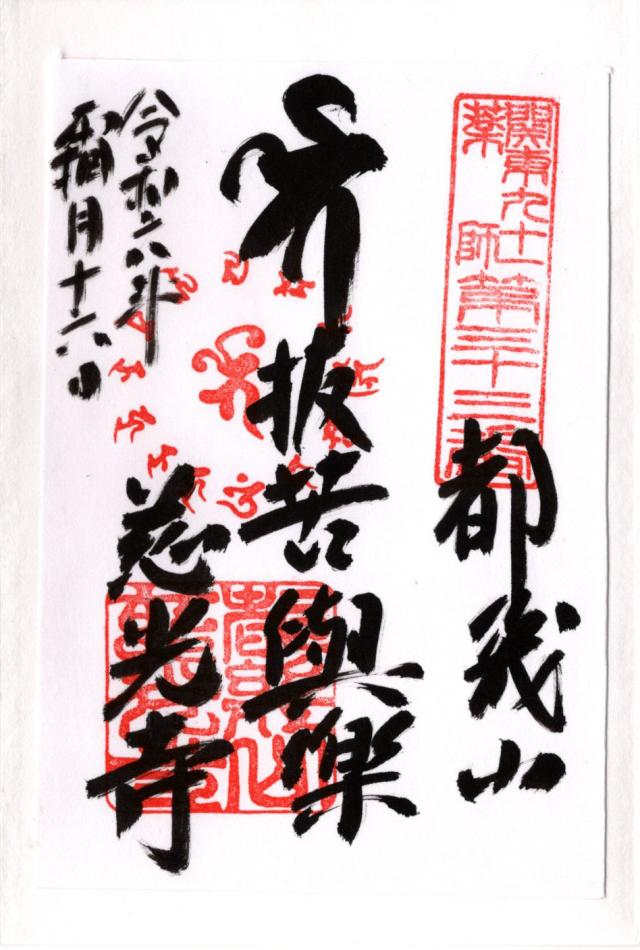 関東九十一
薬師第三十三番
都幾山
抜苦與楽
慈光寺
令和六年
霜月十六日